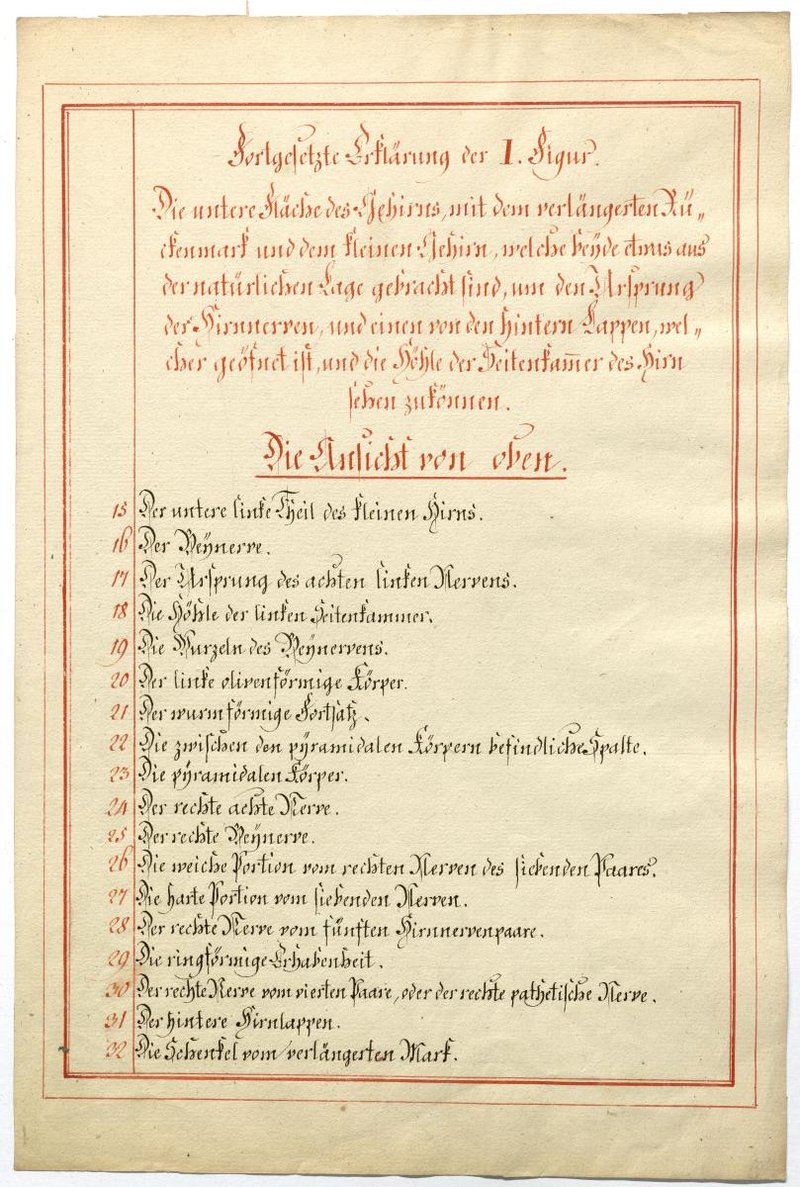 Fortgesetzte Erklärung der I. Figur.
Die untere Fläche des Gehirns, mit dem verlängerten Rü„
ckenmark und dem kleinen Gehirn, welche beyde etwas aus
der natürlichen Lage gebracht sind, um den Ursprung
der Hirnnerven, und einen von den hintern Lappen, wel„
cher geöfnet ist, und die Höhle der Seitenkam̄er des Hirn
sehen zukönnen.
Die Ansicht von oben.
15 Der untere linke Theil des kleinen Hirns.
16 Der Beÿnerve.
17 Der Ursprung des achten linken Nervens.
18 Die Höhle der linken Seitenkammer.
19 Die Wurzeln des Beÿnervens.
20 Der linke olivenförmige Körper.
21 Der wurmförmige Fortsatz.
22 Die zwischen den pÿramidalen Körpern befindliche Spalte.
23 Die pÿramidalen Körper.
24 Der rechte achte Nerve.
25 Der rechte Beÿnerve.
26 Die weiche Portion vom rechten Nerven des siebenden Paares.
27 Die harte Portion vom siebenden Nerven.
28 Der rechte Nerve vom fünften Hirnnervenpaare.
29 Die ringförmige Erhabenheit.
30 Der rechte Nerve vom vierten Paare, oder der rechte pathetische Nerve.
31 Der hintere Hirnlappen.
32 Die Schenkel vom verlängerten Mark.